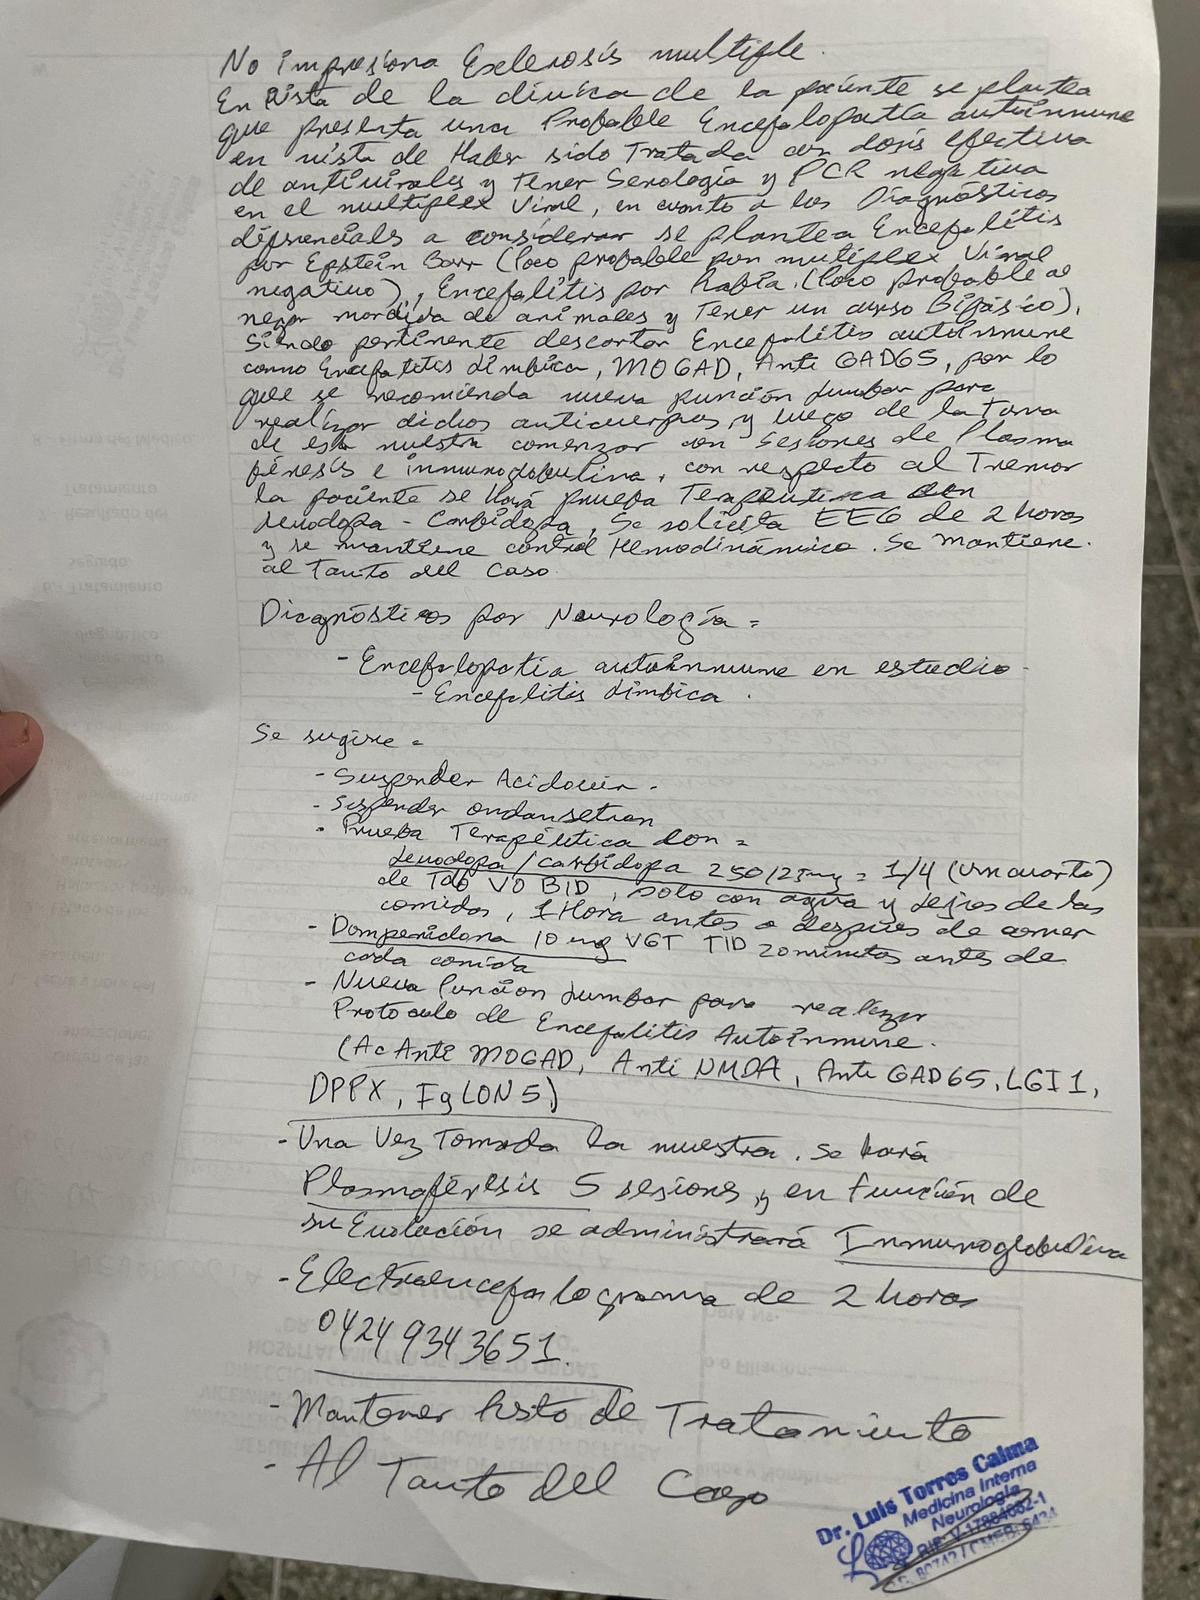 No impresiona Esclerosis multiple.
En vista de la clinica de la paciente se plantea
que presenta una Probable Encefalopatía autoinmune
en vista de Haber sido Tratada con dosis efectiva
de antivirales y Tener Serología y PCR negativa
en el multiplex Viral, en cuanto a los Diagnósticos
diferenciales a considerar se plantea Encefalitis
por Epstein Barr (Poco probable por multiplex Viral
negativo), Encefalitis por Rabia. (Poco probable al
negar mordida de animales y Tener un curso Bifásico).
Siendo pertinente descartar Encefalitis autoinmune
como Encefalitis Límbica, MOGAD, Anti GAD65, por lo
que se recomienda nueva punción Lumbar para
realizar dichos anticuerpos, y luego de la Toma
de esta muestra comenzar con Sesiones de Plasma
féresis e inmunoglobulina, con respecto al Tremor
la paciente se hará prueba Terapéutica con
Levodopa - Carbidopa, Se solicita EEG de 2 horas
y se mantiene control Hemodinámico. Se mantiene
al Tanto del Caso.
Diagnósticos por Neurología =
- Encefalopatia autoinmune en estudio
- Encefalitis Límbica.
Se sugiere =
- Suspender Aciclovir.
- Suspender ondansetron
- Prueba Terapéutica con =
Levodopa / carbidopa 250/25mg = 1/4 (un cuarto)
de Tab VO BID, solo con agua y lejos de las
comidas, 1 Hora antes o después de comer
- Domperidona 10 mg VGT TID 20 minutos antes de
cada comida
- Nueva Puncion Lumbar para realizar
Protocolo de Encefalitis Autoinmune.
(Ac Anti MOGAD, Anti NMDA, Anti GAD65, LGI1,
DPPX, IgLON5)
- Una Vez Tomada la muestra. se hará
Plasmaféresis 5 sesiones, y en función de
su Evolución se administrará Inmunoglobulina
- Electroencefalograma de 2 horas
04249343651.
- Mantener Resto de Tratamiento
- Al Tanto del Caso
Dr. Luis Torres Calma
Medicina Interna
Neurología